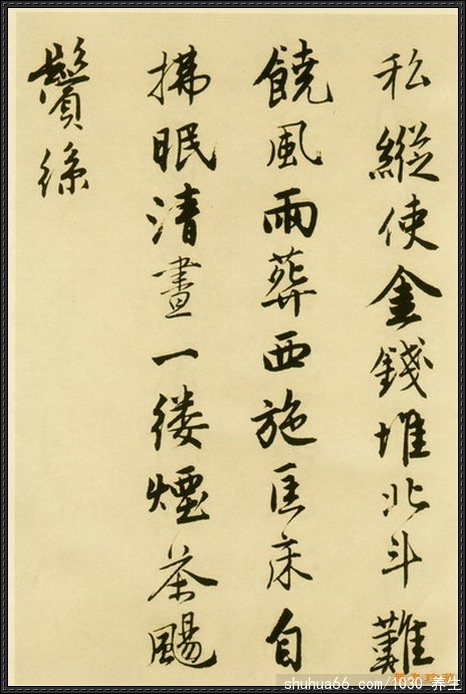 私縱使金錢堆北斗難
饒風雨葬西施匡床自
拂眠清晝一縷煙茶颺
鬢絲
shuhua66.com/1030_养生